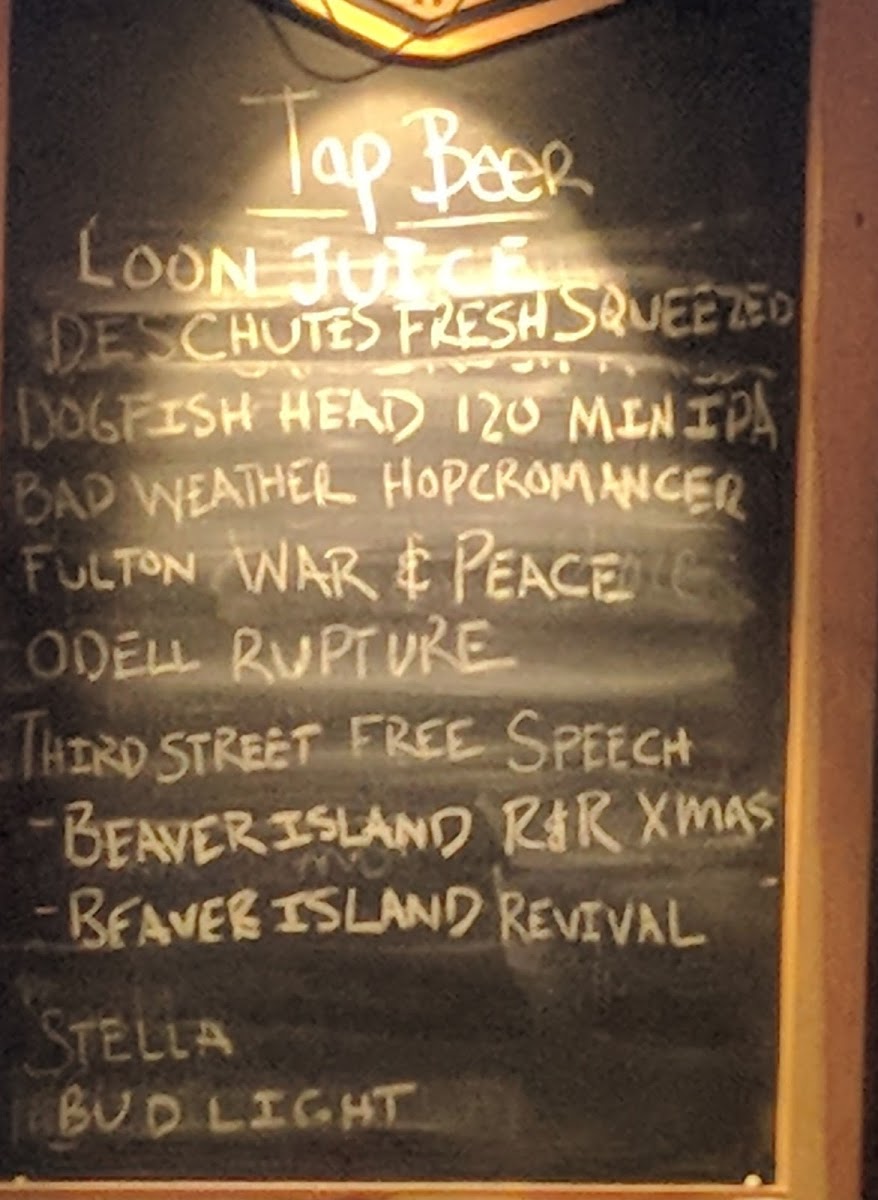 Tap Beer
LOON JUICE
DESCHUTES FRESH SQUEEZED
DOGFISH HEAD 120 MIN IPA
BAD WEATHER HOPCROMANCER
FULTON WAR & PEACE
ODELL RUPTURE
THIRD STREET FREE SPEECH
- BEAVER ISLAND R&R Xmas
- BEAVER ISLAND REVIVAL
STELLA
BUD LIGHT